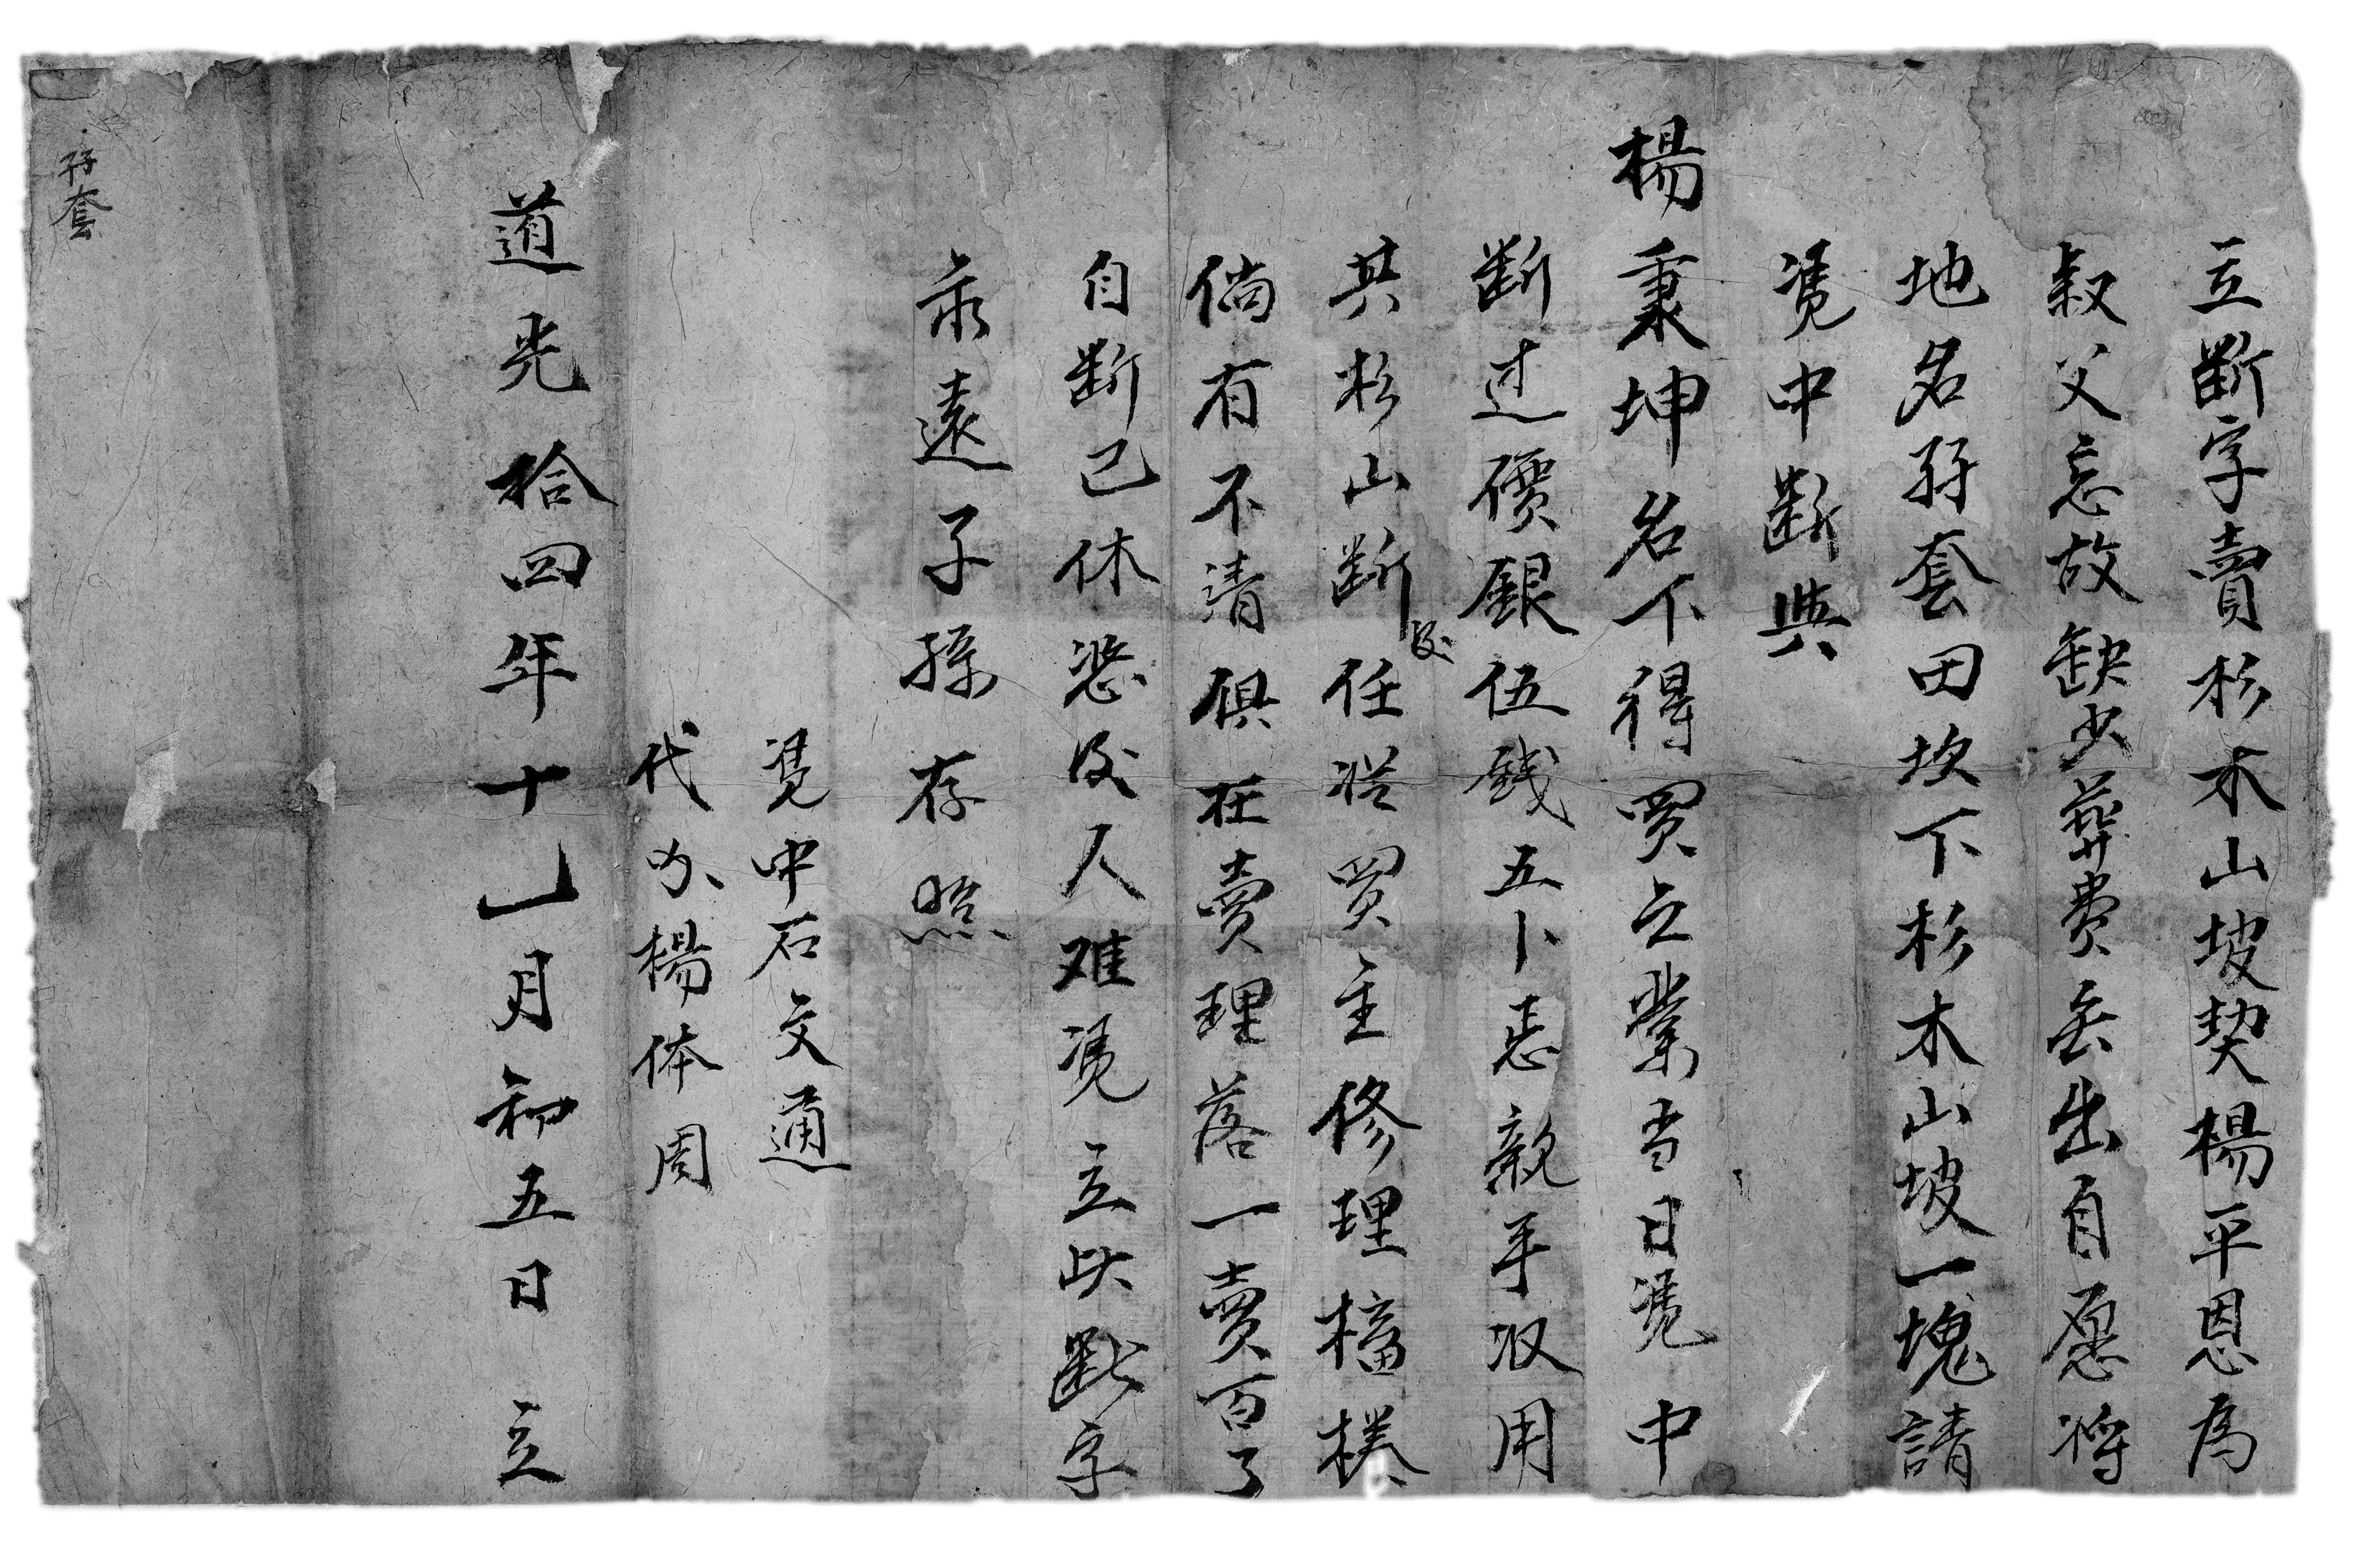 立断字賣杉木山坡契楊平恩為
叔父忘故缺少葬費無出自愿将
地名孖套田坎下杉木山坡一塊請
凴中断與
楊秉坤名下得買之業当日凴中
断过價銀伍銭五卜悉親手収用
其杉山断後任従買主修理樁
倘有不清俱在賣理落一賣百了
自断已休恐後人难凴立此断字
永遠子孫存照
凴中石文通
代筆楊体周
道光拾四年十一月初五日 立
孖套